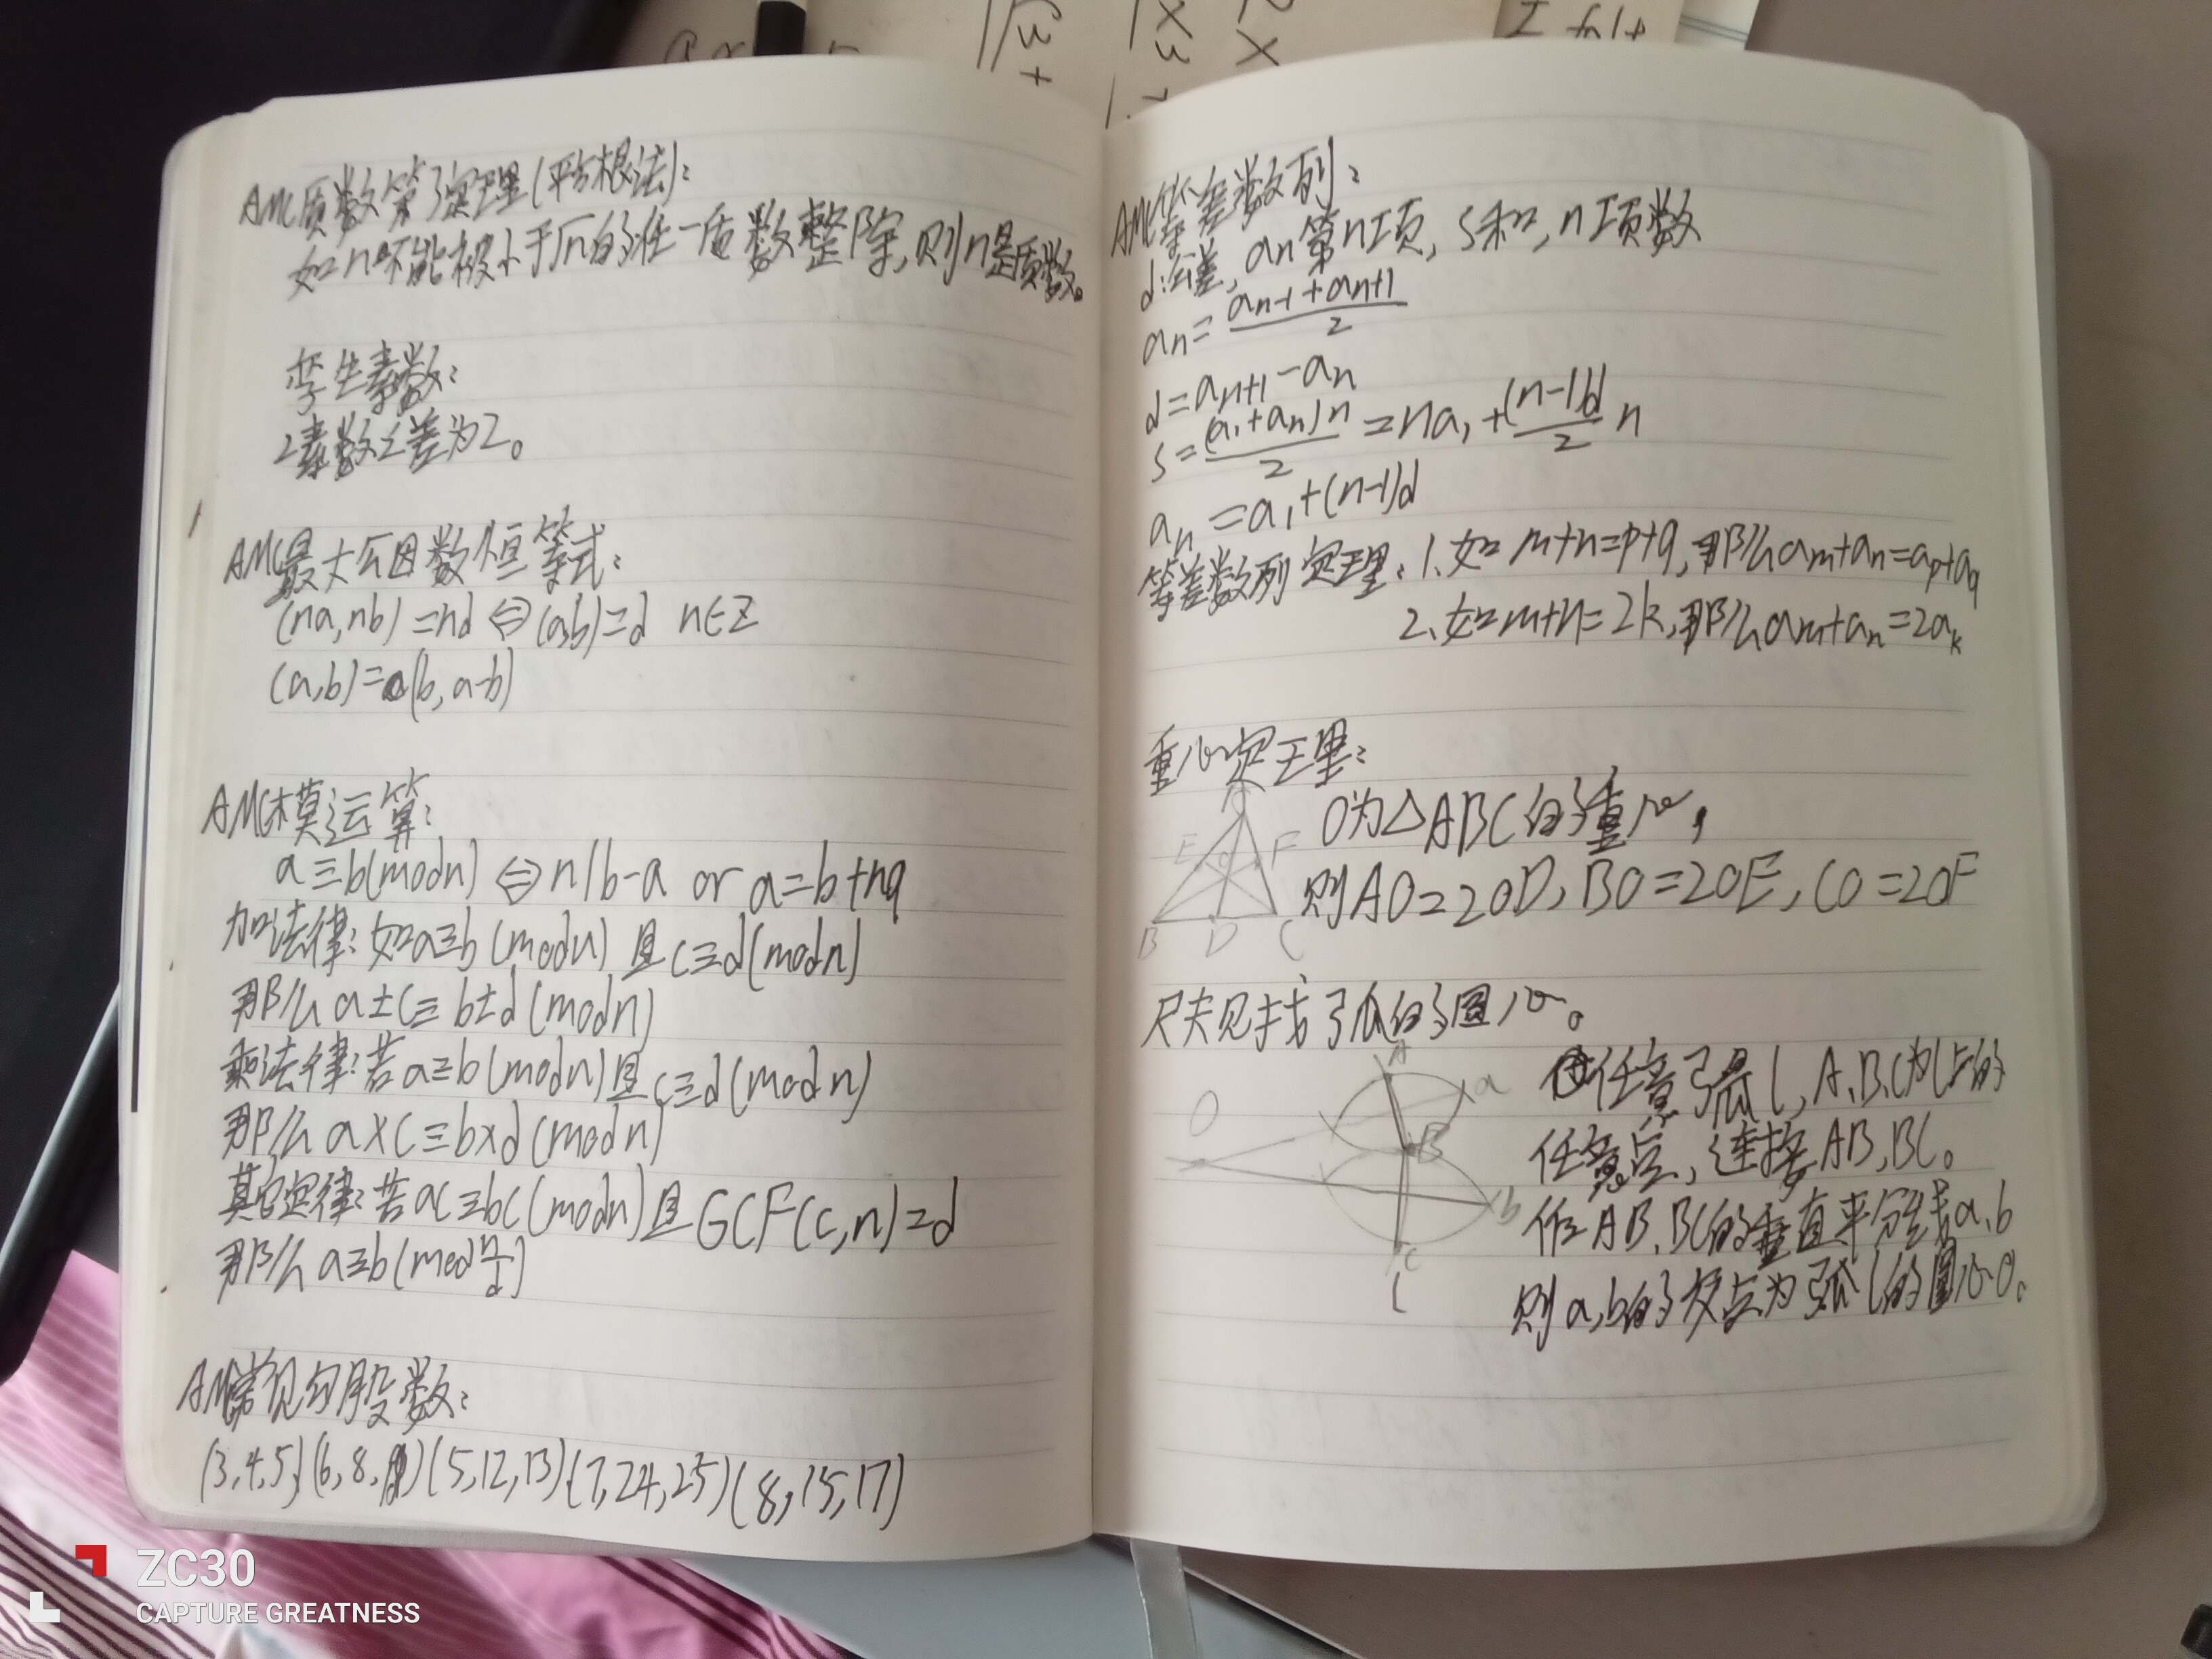 AMC质数第3定理(平方根法):
如n不能被小于√n的任一质数整除,则n是质数。
孪生素数:
2素数之差为2。
AMC最大公因数恒等式:
(na,nb)=nd⇔(a,b)=d n∈Z
(a,b)=(b,a-b)
AMC模运算:
a≡b(modn)⇔n|b-a or a=b+nq
加法律:如a≡b(modn)且c≡d(modn)
那么a±c≡b±d(modn)
乘法律:若a≡b(modn)且c≡d(modn)
那么a×c≡b×d(modn)
其它定律:若ac≡bc(modn)且GCF(c,n)=d
那么a≡b(mod n/d)
AMC常见勾股数:
(3,4,5)(6,8,10)(5,12,13)(7,24,25)(8,15,17)
AMC等差数列:
d:公差,an第n项,S和,n项数
an=(an-1+an+1)/2
d=an+1-an
S=(a1+an)n/2=na1+(n-1)d/2 n
an=a1+(n-1)d
等差数列定理:1.如m+n=p+q,那么am+an=ap+aq
2.如m+n=2k,那么am+an=2ak
重心定理:
A
E O F
B D C
O为△ABC的重心,
则AO=2OD,BO=2OE,CO=2OF
尺规找弧的圆心。
A
a
O
B
b
C
l
任意弧l,A、B、C为l上的
任意点,连接AB,BC。
作AB、BC的垂直平分线a、b
则a,b的交点为弧l的圆心O。
ZC30
CAPTURE GREATNESS